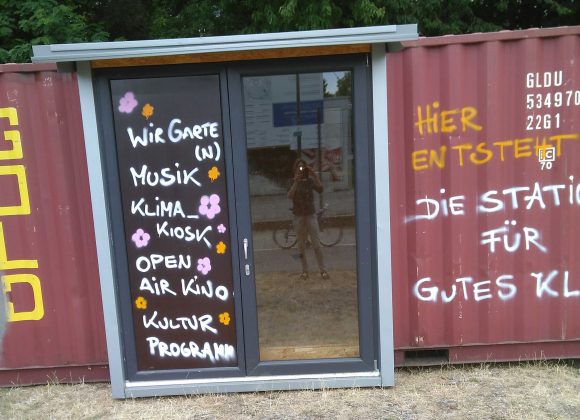 WIR GARTE
(N)
MUSIK
KLIMA_
KIOSK
OPEN
AIR KINO
KULTUR
PROGRAMM
GLDU
534970
22G1
HIER
ENTSTEHT
DIE STATIO
FÜR
GUTES KL